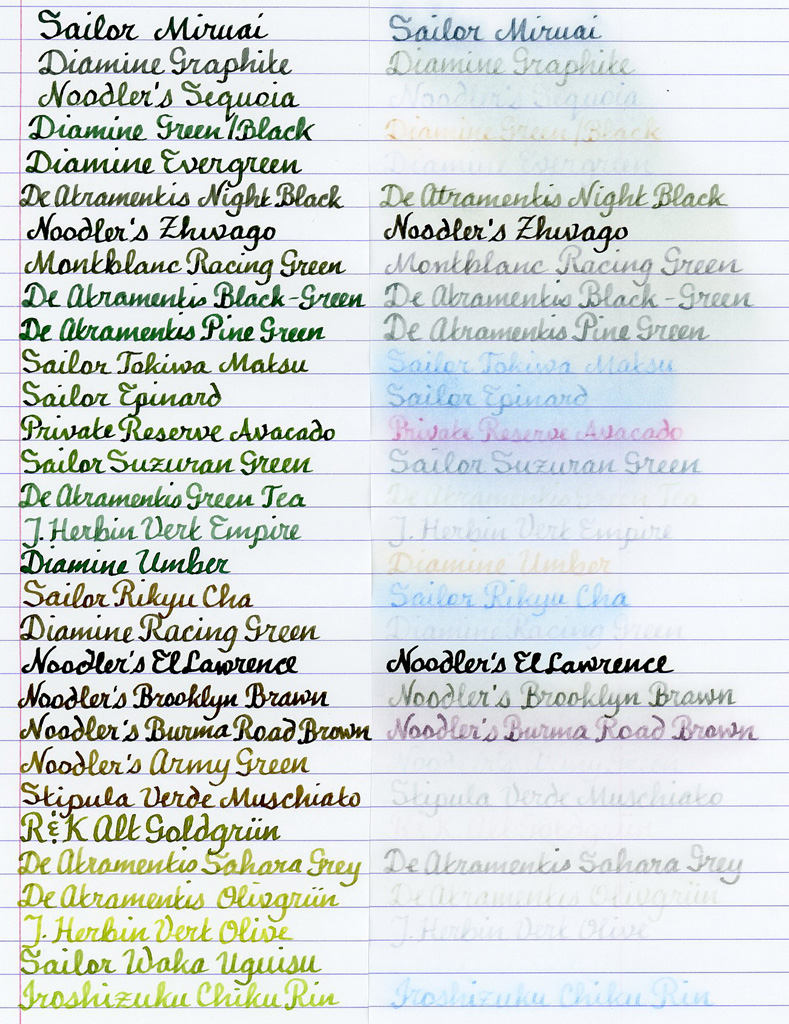 Sailor Miruai Sailor Miruai
Diamine Graphite Diamine Graphite
Noodler's Sequoia Noodler's Sequoia
Diamine Green/Black Diamine Green/Black
Diamine Evergreen Diamine Evergreen
De Atramentis Night Black De Atramentis Night Black
Noodler's Zhivago Noodler's Zhivago
Montblanc Racing Green Montblanc Racing Green
De Atramentis Black-Green De Atramentis Black-Green
De Atramentis Pine Green De Atramentis Pine Green
Sailor Tokiwa Matsu Sailor Tokiwa Matsu
Sailor Epinard Sailor Epinard
Private Reserve Avacado Private Reserve Avacado
Sailor Suzuran Green Sailor Suzuran Green
De Atramentis Green Tea De Atramentis Green Tea
J. Herbin Vert Empire J. Herbin Vert Empire
Diamine Umber Diamine Umber
Sailor Rikyu Cha Sailor Rikyu Cha
Diamine Racing Green Diamine Racing Green
Noodler's El Lawrence Noodler's El Lawrence
Noodler's Brooklyn Brown Noodler's Brooklyn Brown
Noodler's Burma Road Brown Noodler's Burma Road Brown
Noodler's Army Green Noodler's Army Green
Stipula Verde Muschiato Stipula Verde Muschiato
R&K Alt Goldgrün R&K Alt Goldgrün
De Atramentis Sahara Grey De Atramentis Sahara Grey
De Atramentis Olivgrün De Atramentis Olivgrün
J. Herbin Vert Olive J. Herbin Vert Olive
Sailor Waka Uguisu
Iroshizuku Chiku Rin Iroshizuku Chiku Rin